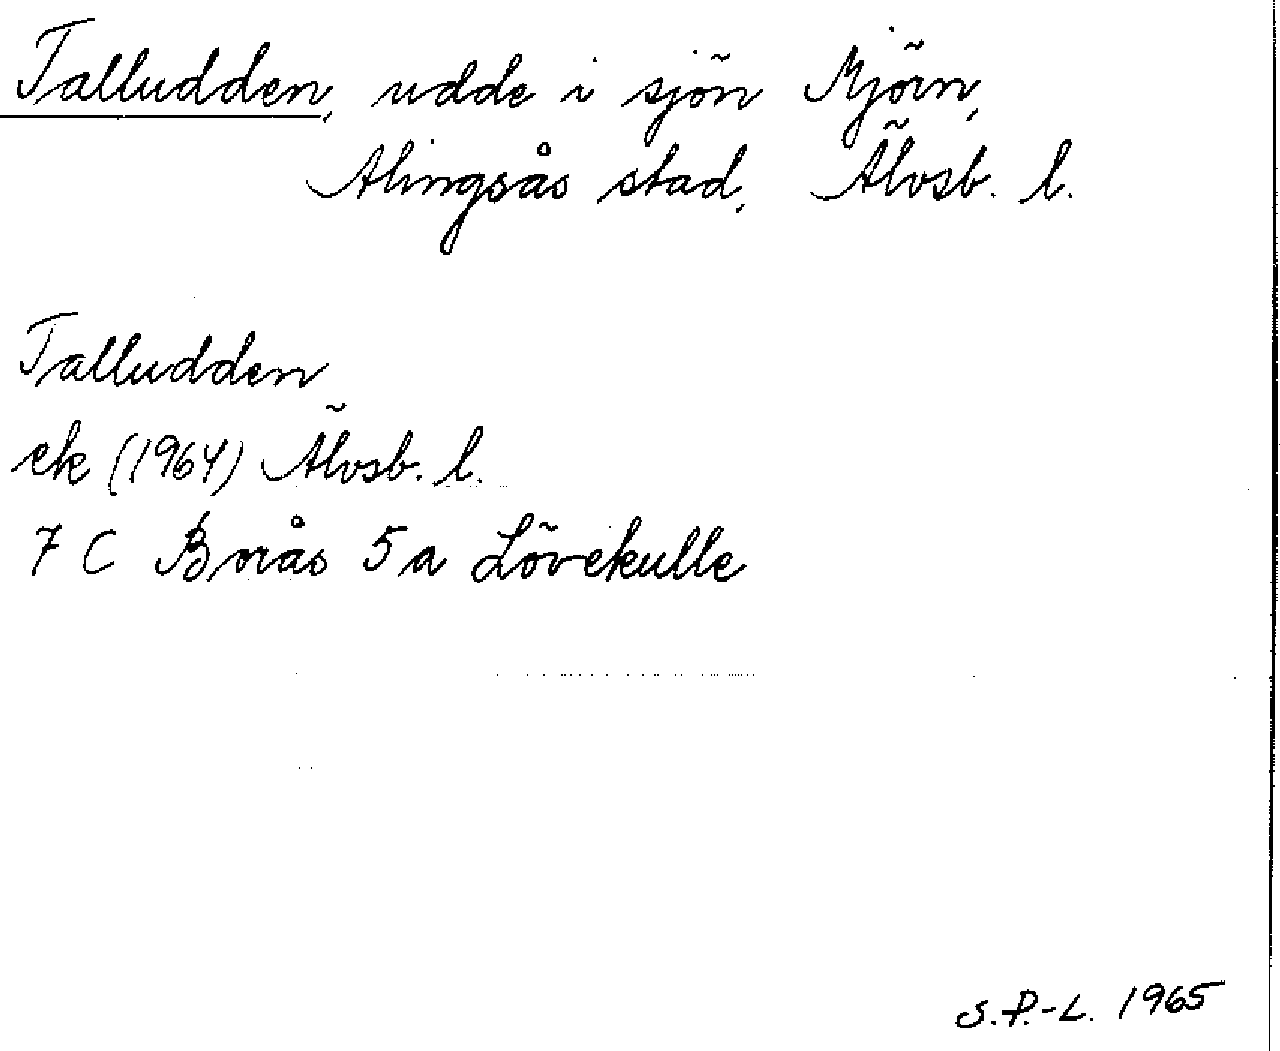 Talludden, udde i sjön Mjörn,
Alingsås stad, Älvsb. l.
Talludden
ek (1964) Älvsb. l.
7 C Borås 5 a Lövekulle
S.P.-L. 1965